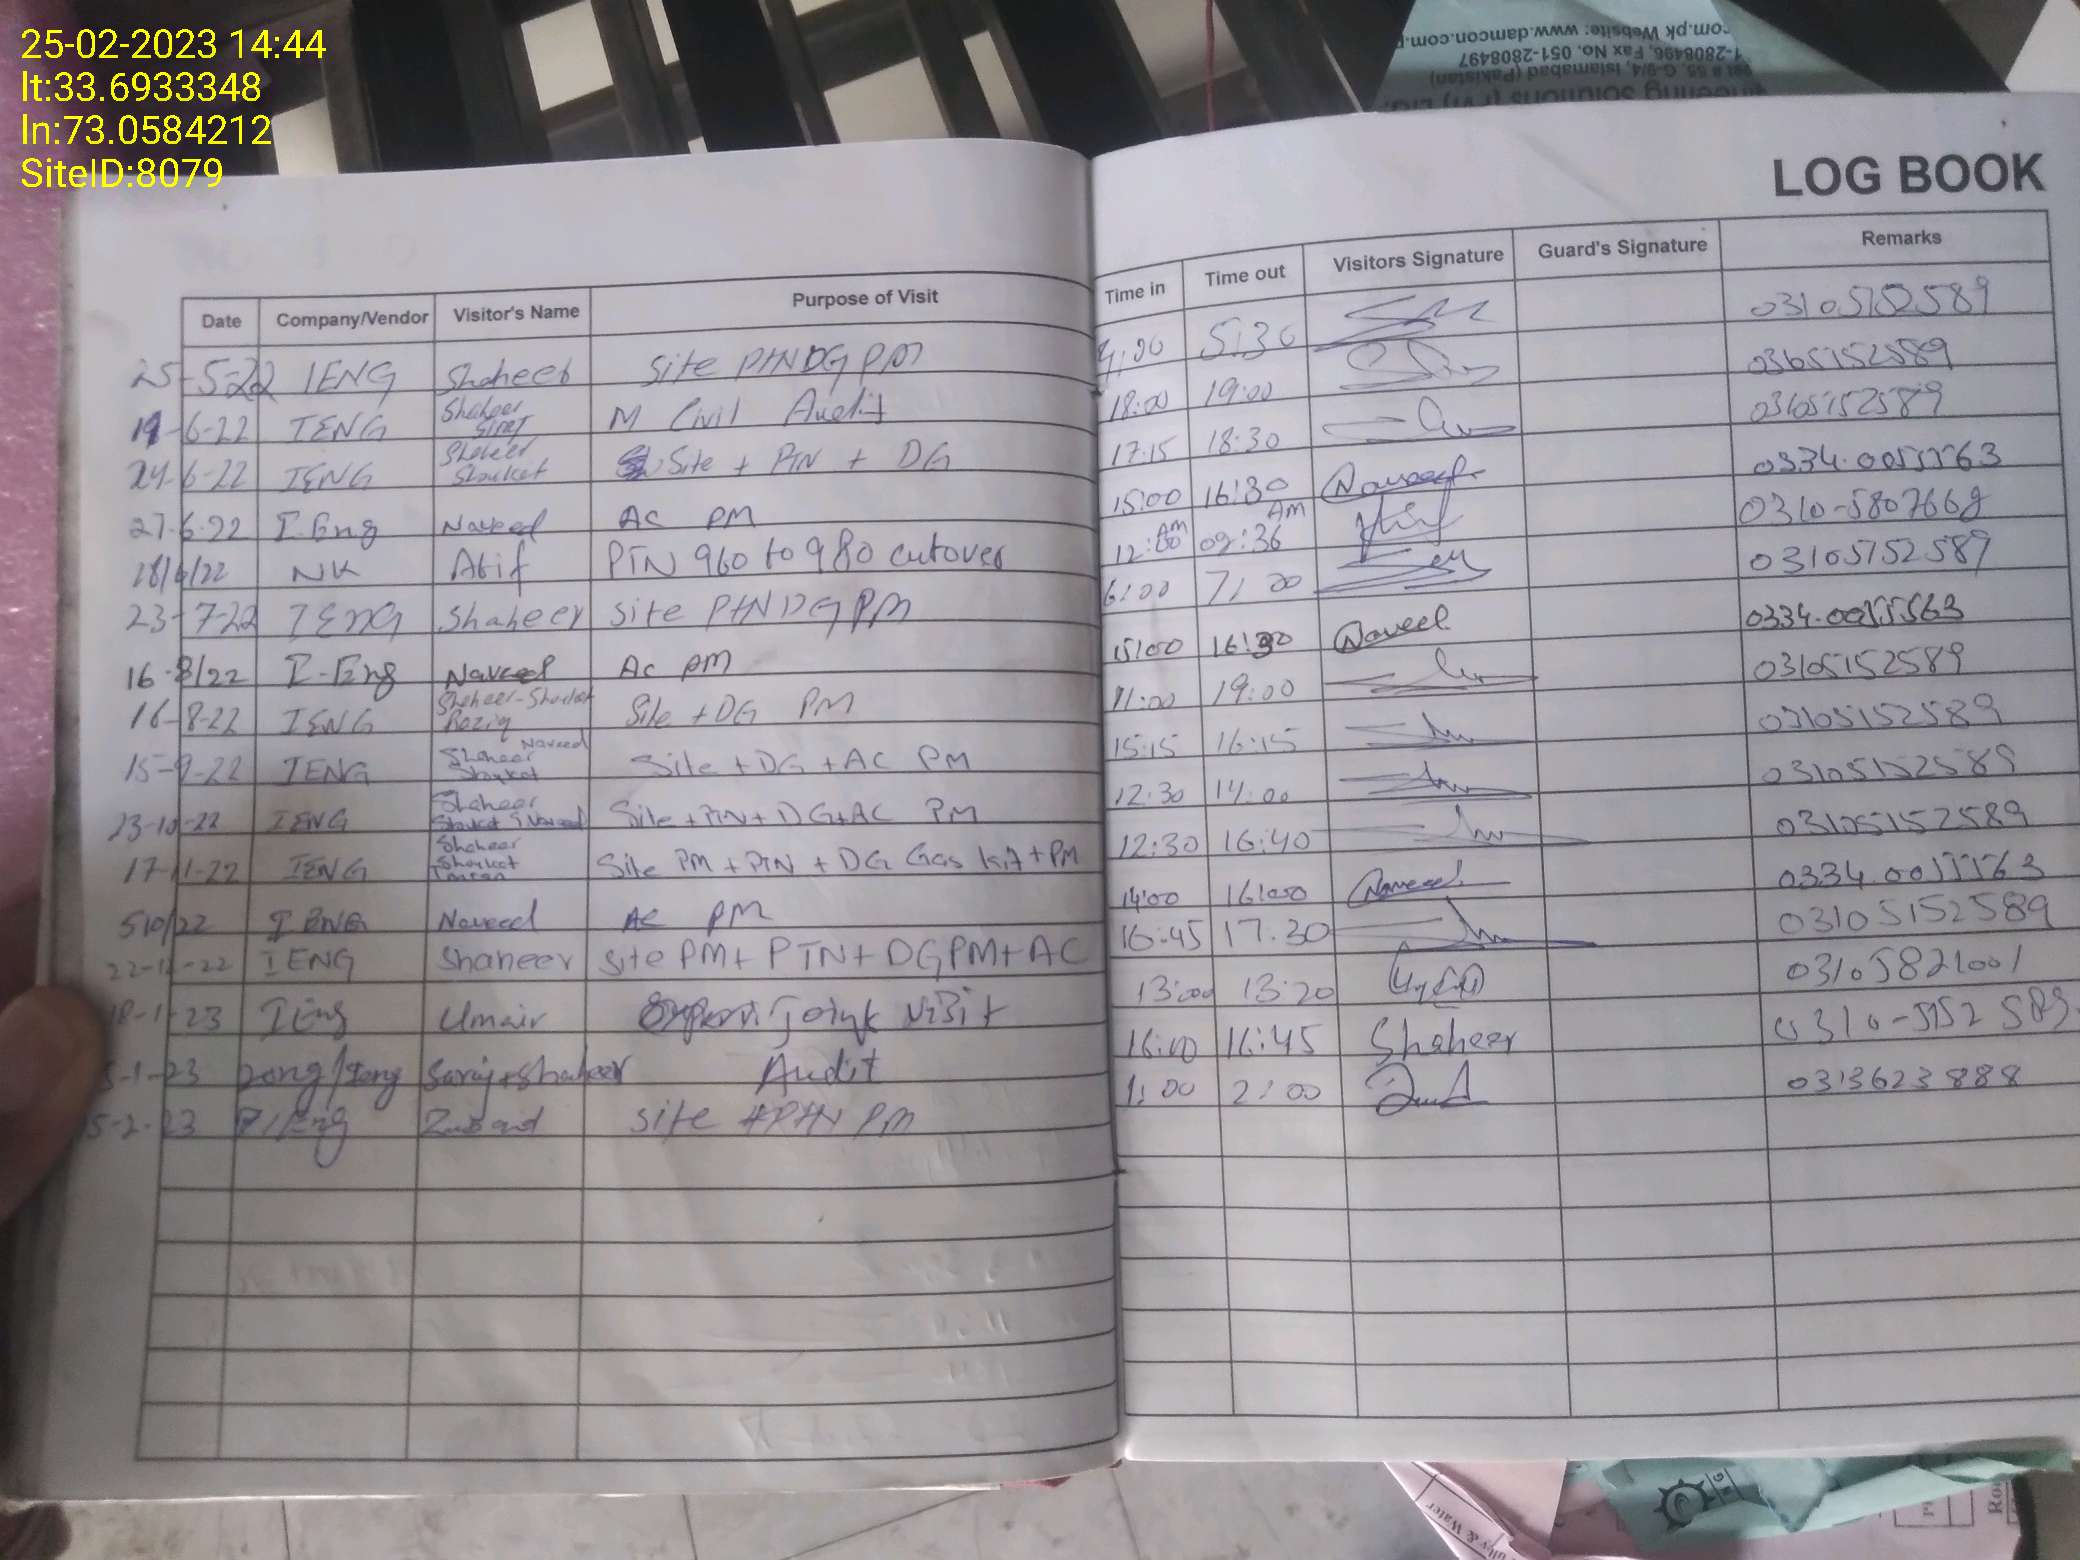 25-02-2023 14:44
lt:33.6933348
ln:73.0584212
SiteID:8079
com.pk Website: www.damcon.com.p
1-2808496, Fax No. 051-2808497
G-9/4, Islamabad (Pakistan)
neering Solutions (Pvt) Ltd.
LOG BOOK
Date Company/Vendor Visitor's Name Purpose of Visit Time in Time out Visitors Signature Guard's Signature Remarks
25-5-22 IENG Shaheer Site PTN DG PM 4:00 5:30 03105152589
19-6-22 IENG Shaheer M Civil Audit 18:00 19:00 0365152589
24-6-22 IENG Shaheer Shoukat Site + PTN + DG 17:15 18:30 03105152589
27-6-22 I.Eng Naveed AC PM 15:00 16:30 Naveed 0334.0055563
18/ /22 NK Atif PTN 960 to 980 cutover 12:00 AM 02:36 AM Atif 0310-5807668
23-7-22 IENG Shaheer Site PTN DG PM 6:00 7:00 03105152589
16-8/22 I-Eng Naveed AC PM 15:00 16:30 Naveed 0334.0055563
16-8-22 IENG Shaheer-Shoukat Raziq Site + DG PM 11:00 19:00 03105152589
15-9-22 IENG Shaheer Naveed Shoukat Site + DG + AC PM 15:15 16:15 03105152589
23-10-22 IENG Shaheer Shoukat Naveed Site + PTN + DG + AC PM 12:30 14:00 03105152589
17-11-22 IENG Shaheer Shoukat Imran Site PM + PTN + DG Gas kit + PM 12:30 16:40 03105152589
510/22 IENG Naveed AC PM 14:00 16:00 Naveed 0334.0055563
22-12-22 IENG Shaheer Site PM + PTN + DG PM + AC 16:45 17:30 03105152589
18-1-23 IEng Umair Joint Visit 13:00 13:20 03105821001
5-1-23 Zong/Ieng Saraj + Shaheer Audit 16:00 16:45 Shaheer 0310-5152589
5-2-23 I/Eng Site + PTN PM 1:00 2:00 0313623888
& Water